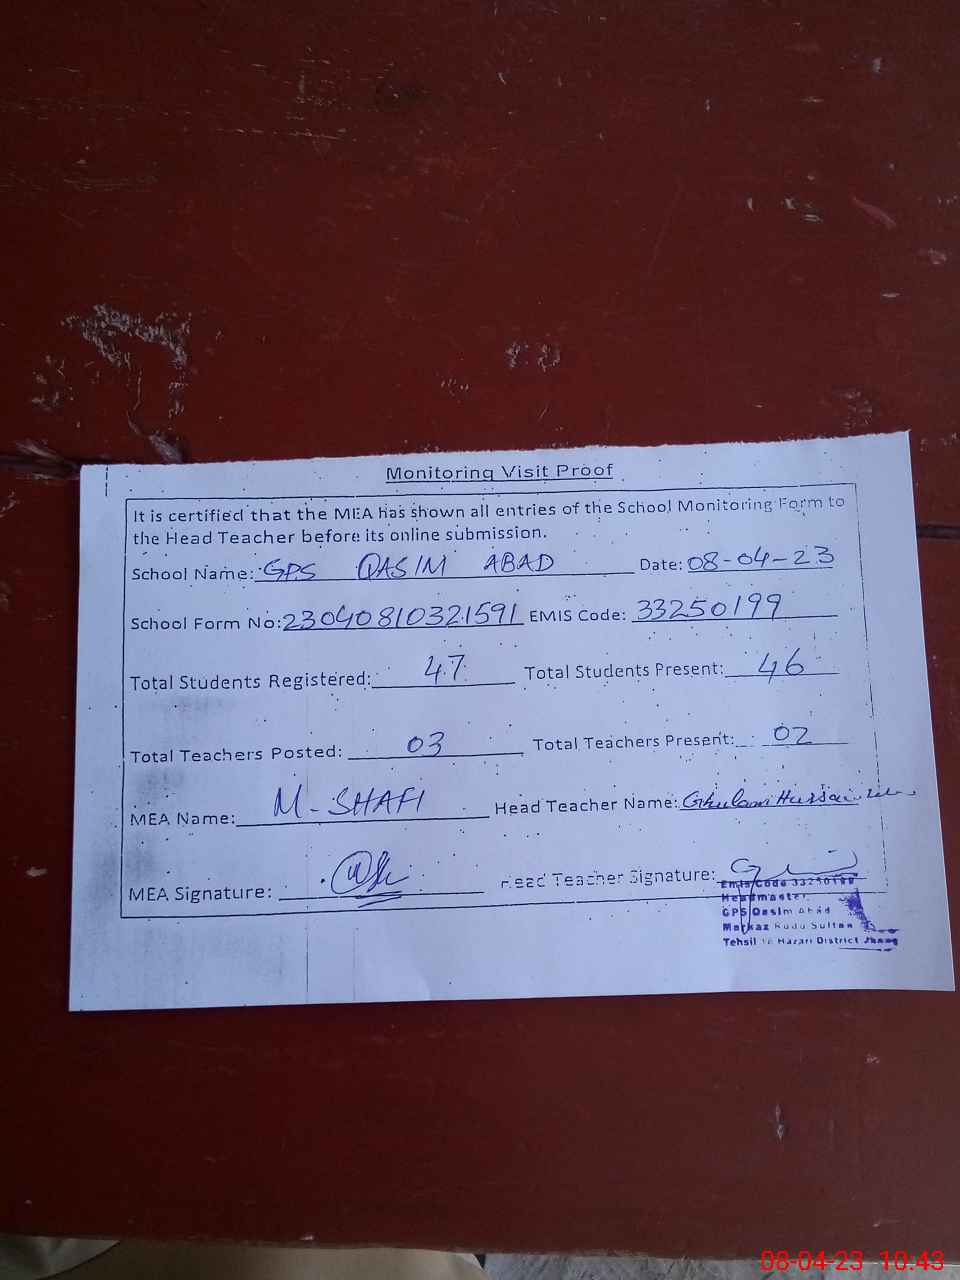 Monitoring Visit Proof
It is certified that the MEA has shown all entries of the School Monitoring Form to
the Head Teacher before its online submission.
School Name: GPS QASIM ABAD Date: 08-04-23
School Form No: 23040810321591 EMIS Code: 33250199
Total Students Registered: 47 Total Students Present: 46
Total Teachers Posted: 03 Total Teachers Present: 02
MEA Name: M-SHAFI Head Teacher Name: Ghulam Hussain
MEA Signature: Head Teacher Signature:
Emis Code 33250199
Headmaster
GPS Qasim Abad
Markaz Kudu Sultan
Tehsil 18 Hazari District Jhang
08-04-23 10:43